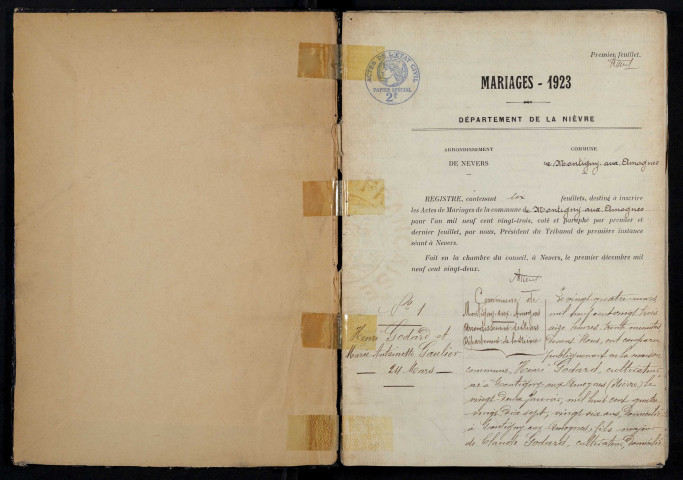 Premier feuillet.
ACTES DE L'ETAT CIVIL
PAPIER SPÉCIAL
2F
MARIAGES - 1923
DÉPARTEMENT DE LA NIÈVRE
ARRONDISSEMENT
DE NEVERS
COMMUNE
de Montigny-aux-Amognes
REGISTRE, contenant six feuillets, destiné à inscrire
les Actes de Mariages de la commune de Montigny-aux-Amognes
pour l'an mil neuf cent vingt-trois, coté et paraphé par premier et
dernier feuillet, par nous, Président du Tribunal de première instance
séant à Nevers.
Fait en la chambre du conseil, à Nevers, le premier décembre mil
neuf cent vingt-deux.
No 1
Henri Godard et
Marie Antoinette Gaulier
24 Mars
Commune de
Montigny-aux-Amognes
Arrondissement de Nevers
Département de la Nièvre
Le vingt quatre mars
mil neuf cent vingt trois
heures trente minutes
devant Nous, ont comparu
publiquement en la maison
commune, Henri Godard, cultivateur
né à Montigny aux Amognes (Nièvre) le
vingt janvier, mil huit cent quatre
vingt dix sept, vingt six ans, domicilié
à Montigny aux Amognes, fils majeur
de Claude Godard, cultivateur, domicilié